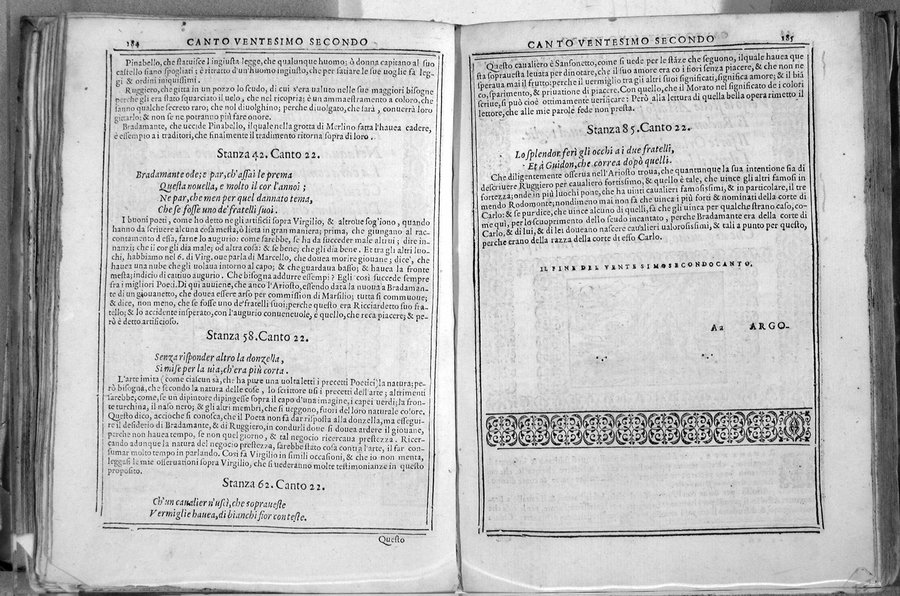 184
CANTO VENTESIMO SECONDO
Pinabello, che statuisce l ingiusta legge, che qualunque huomo; ò donna capitano al suo
castello siano spogliati; è ritratto d'un huomo ingiusto, che per satiare le sue uoglie fa leg-
gi & ordini iniquissimi.
Ruggiero, che gitta in un pozzo lo scudo, di cui s'era ualuto nelle sue maggiori bisogne
perche gli era stato squarciato il uelo, che nel ricopria; è un ammaestramento a coloro, che
hanno qualche secreto raro; che nol diuolghino; perche diuolgato, che sarà, conuerrà loro
gittarlo; & non se ne potranno più fare onore.
Bradamante, che uccide Pinabello, il quale nella grotta di Merlino fatta l'haueua cadere,
è essempio a i traditori, che finalmente il tradimento ritorna sopra di loro.
Stanza 42. Canto 22.
Bradamante ode; e par, ch'assai le prema
Questa nouella, e molto il cor l'annoi;
Ne par, che men per quel dannato tema,
Che se fosse uno de' fratelli suoi.
I buoni poeti, come ho detto ne gli artificii sopra Virgilio, & altroue sogliono, quando
hanno da scriuere alcuna cosa mesta, ò lieta in gran maniera; prima, che giungano al rac-
contamento d'essa, farne lo augurio: come sarebbe, se ha da succeder male altrui; dire in-
nanzi; che il cor gli dia male; od altra cosa: & se bene; che gli dia bene. Et tra gli altri luo-
chi, habbiamo nel 6. di Virg. oue parla di Marcello, che douea morire giouane; dice, che
hauea una nube che gli uolaua intorno al capo; & che guardaua basso; & hauea la fronte
mesta; indicio di cattiuo augurio. Che bisogna addurre essempi? Egli così succede sempre
fra i migliori Poeti. Di qui auuiene, che anco l'Ariosto, essendo data la nuoua a Bradaman-
te di un giouanetto, che douea essere arso per commission di Marsilio; tutta si commuoue;
& dice, non meno, che se fosse uno de' fratelli suoi; perche questo era Ricciardetto suo fra-
tello; & lo accidente insperato, con l'augurio conueneuole, è quello, che reca piacere; & pe-
rò è detto artificioso.
Stanza 58. Canto 22.
Senza risponder altro la donzella,
Si mise per la uia, ch'era più corta.
L'arte imita (come ciascun sà, che ha piu e una uolta letti i precetti Poetici) la natura; pe-
rò bisogna, che secondo la natura delle cose, lo scrittore usi i precetti dell'arte; altrimenti
sarebbe, come, se un dipintore dipingesse sopra il capo d'una imagine, i capei uerdi; la fron-
te turchina, il naso nero; & gli altri membri, che si ueggono, fuori del loro naturale colore.
Questo dico, accioche si conosca, che il Poeta non fa dar risposta alla donzella, ma essegui-
re il desiderio di Bradamante, & di Ruggiero, in condurli doue si douea ardere il giouane,
perche non hauea tempo, se non quel giorno, & tal negocio ricercaua prestezza. Ricer-
cando adunque la natura del negocio prestezza, sarebbe stato cosa contra l'arte, il far con-
sumar molto tempo in parlando. Così fà Virgilio in simili occasioni, & che io non menta,
leggasi le mie osseruationi sopra Virgilio, che si uederanno molte testimonianze in questo
proposito.
Stanza 62. Canto 22.
Ch'un caualier n'uscì, che soprauеste
Vermiglie hauea, di bianchi fior conteste.
Questo
CANTO VENTESIMO SECONDO
185
Questo caualiero è Sansonetto, come si uede per le stāze che seguono, il quale hauea que
sta soprauesta leuata per dinotare, che il suo amore era co i fiori senza piacere, & che non ne
speraua mai il frutto: perche il uermiglio tra gli altri suoi significati, significa amore; & il biā
co, sparimento, & priuatione di piacere. Con quello, che il Morato nel significato de i colori
scriue, si può cioè ottimamente uerificare: Però alla lettura di quella bella opera rimetto il
lettore, che alle mie parole fede non presta.
Stanza 85. Canto 22.
Lo splendor ferì gli occhi a i due fratelli,
Et à Guidon, che correa dopò quelli.
Che diligentemente osserua nell'Ariosto troua, che quantunque la sua intentione sia di
descriuere Ruggiero per caualiero fortissimo, & quello è tale, che uinse gli altri famosi in
fortezza; onde in più luochi pone, che ha uinti caualieri famosissimi, & in particolare, il tre
mendo Rodomonte; nondimeno mai non fà che uinca i più forti & nominati della corte di
Carlo: & se pur dice, che uince alcuno di quelli, fà che gli uinca per qualche strano caso, co-
me quì, per lo scuoprimento dello scudo incantato, perche Bradamante era della corte di
Carlo, & di lui, & di lei doueano nascere caualieri ualorosissimi, & tali a punto per questo,
perche erano della razza della corte di esso Carlo.
IL FINE DEL VENTESIMOSECONDO CANTO.
Aa ARGO-